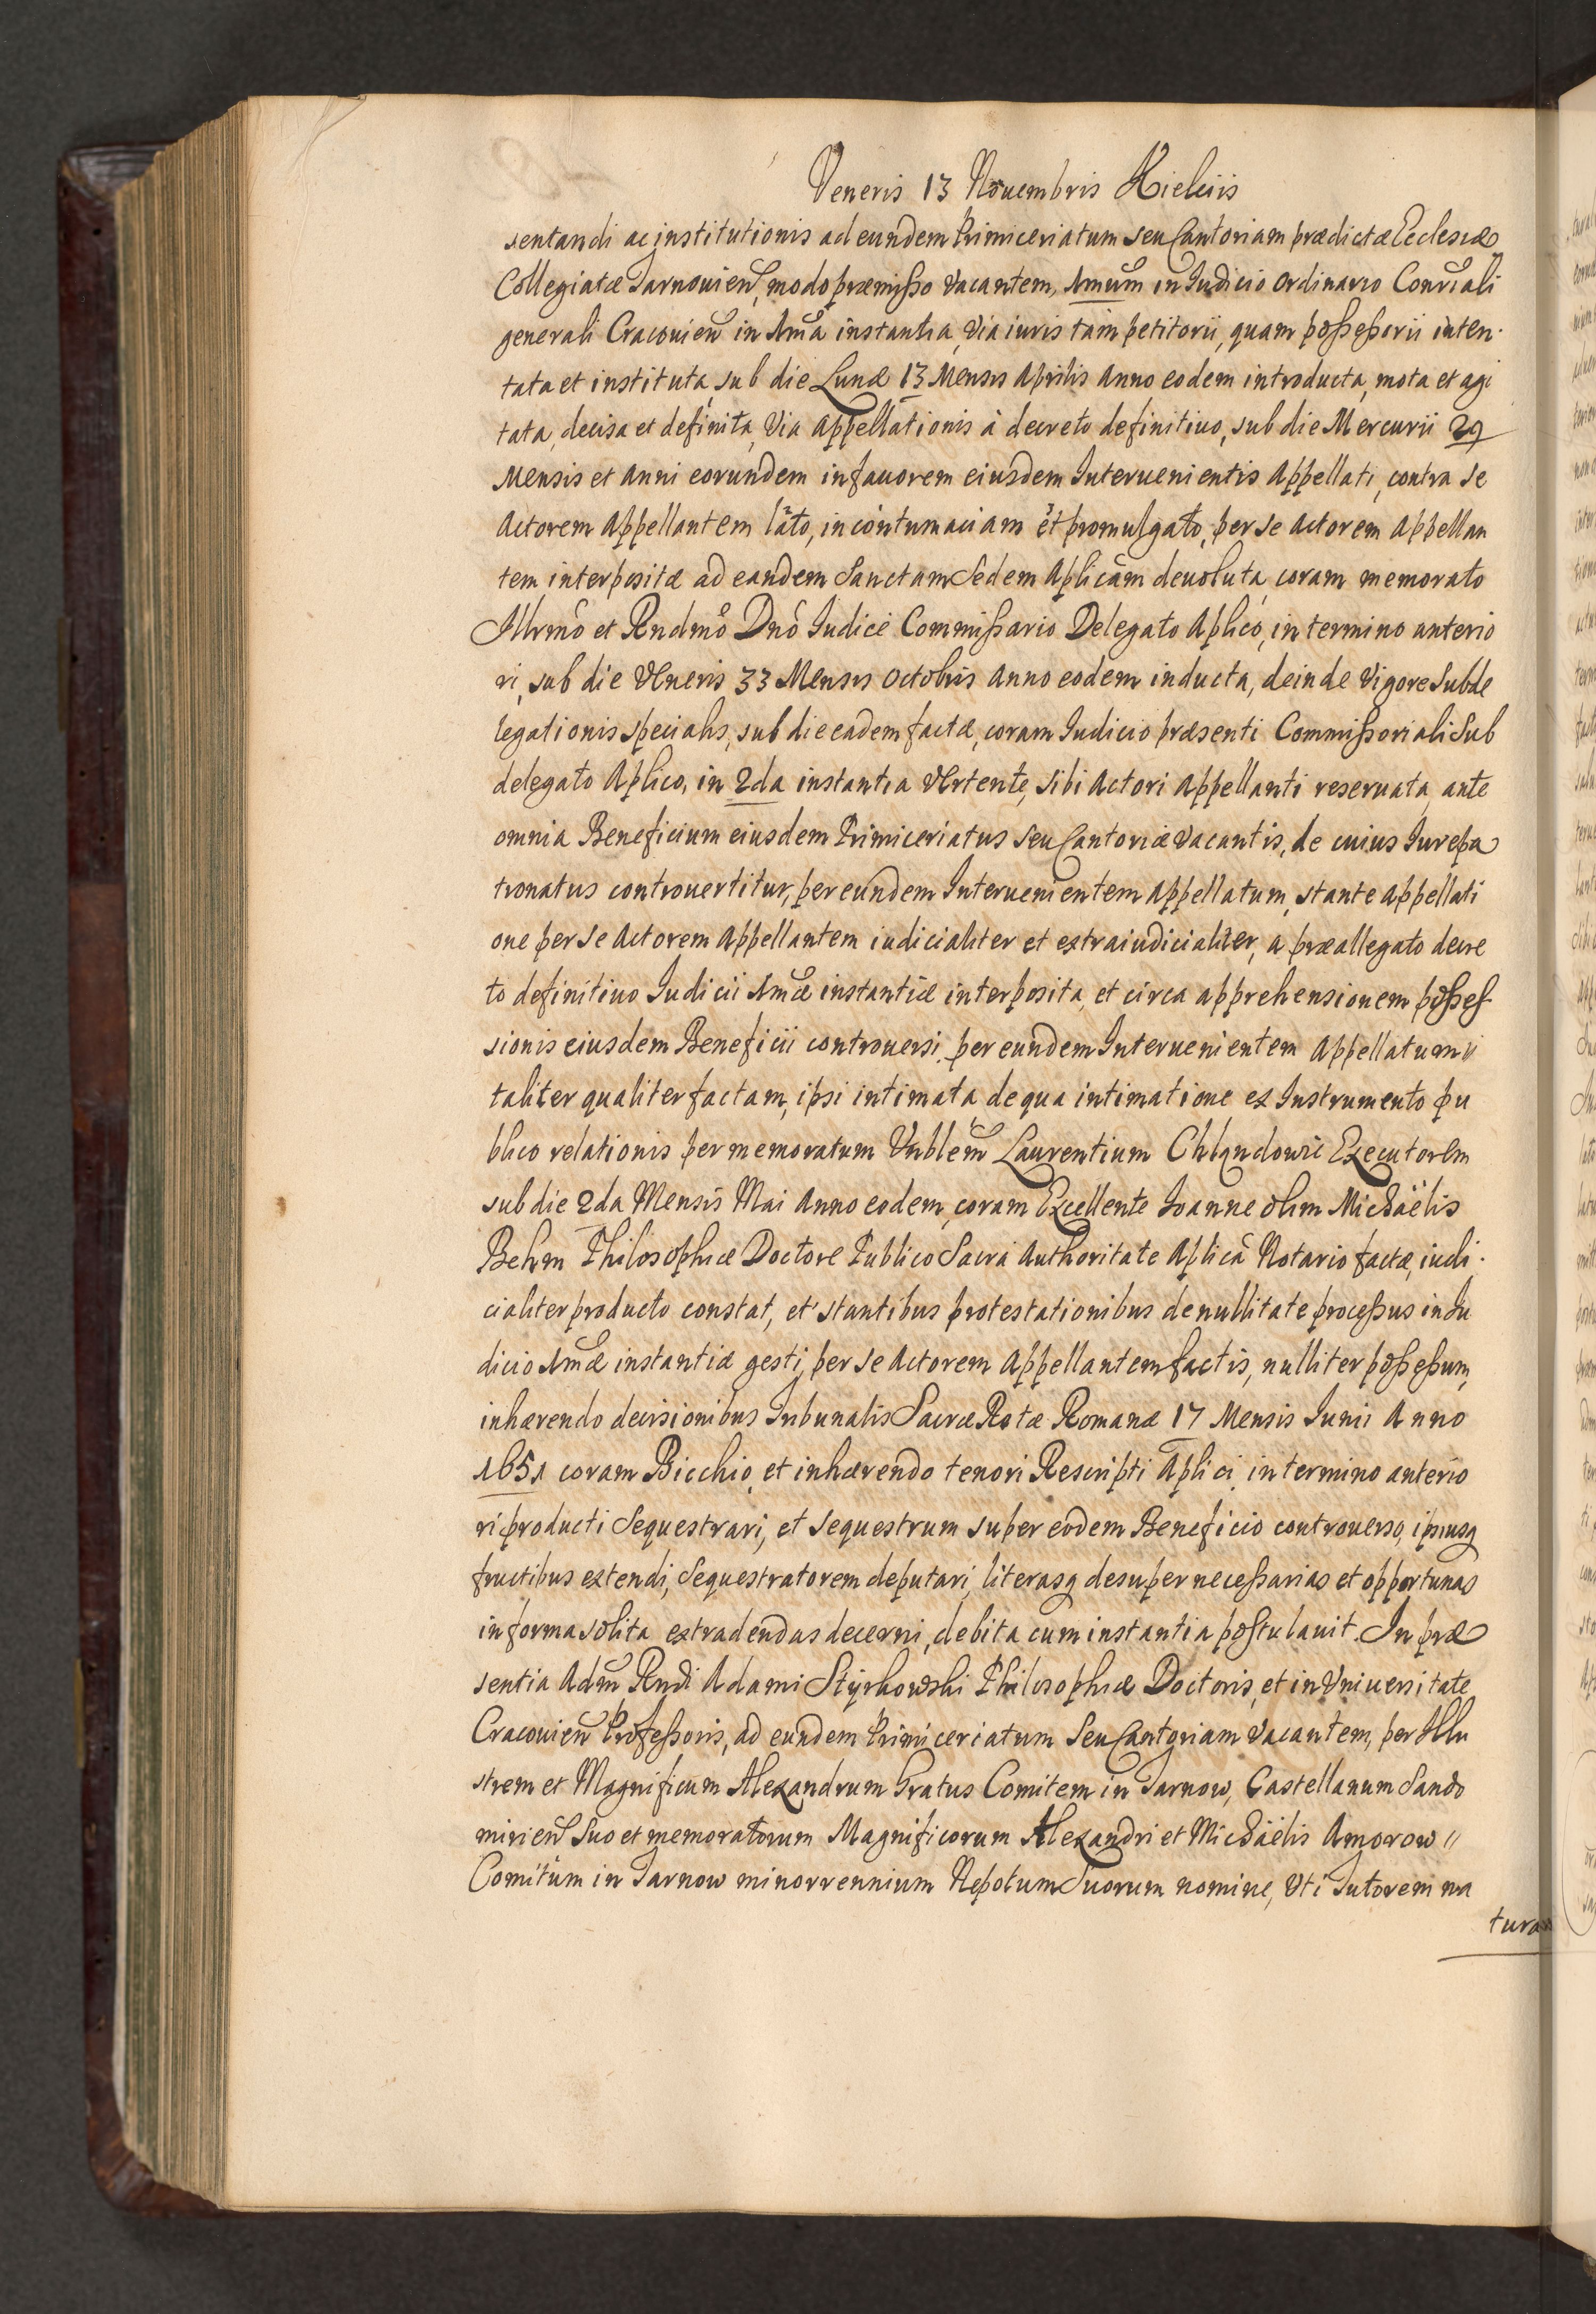 Veneris 13 Nouembris Kielciis
sentandi ac institutionis ad eundem Primiceriatum seu Cantoriam prædictæ Ecclesiæ
Collegiatæ Tarnouien̄, modo præmisso vacantem, 1mum in Iudicio ordinario Conr̄iali
generali Cracouien̄ in 1ma instantia, via iuris tam petitorii, quam possessorii inten-
tata et instituta, sub die Lunæ 13 Mensis Aprilis Anno eodem introducta, mota et agi
tata, decisa et definita, via appellationis à decreto definitiuo, sub die Mercurii 29
Mensis et Anni eorundem in fauorem eiusdem Interuenientis Appellati, contra se
Actorem Appellantem lato, in contumaciam et promulgato, per se Actorem Appellan
tem interpositæ ad eandem Sanctam Sedem Aplicām deuoluta, coram memorato
Illrmō et Rndmō Dnō Iudice Commissario Delegato Aplicō, in termino anterio
ri, sub die Veneris 33 Mensis Octobris Anno eodem inducta, deinde vigore Subde
legationis specialis, sub die eadem factæ, coram Iudicio præsenti Commissoriali Sub
delegato Aplico, in 2da instantia vertente, sibi Actori Appellanti reseruata, ante
omnia Beneficium eiusdem Primiceriatus seu Cantoriæ vacantis, de cuius Iurepa
tronatus controuertitur, per eundem Interuenientem Appellatum, stante appellati
one per se Actorem Appellantem iudicialiter et extraiudicialiter, a præallegato decre
to definitiuo Iudicii 1mæ instantiæ interposita, et circa apprehensionem posses
sionis eiusdem Beneficii controuersi, per eundem Interuenientem Appellatum
taliter qualiter factam, ipsi intimata, de qua intimatione ex Instrumento pu
blico relationis per memoratum Vnblem̄ Laurentium Chlandowic Executorem
sub die 2da Mensis Mai Anno eodem, coram Excellente Ioanne olim Michaëlis
Behm Philosophiæ Doctore Publico Sacra Authoritate Aplicā Notario factæ, iudi-
cialiter producto constat, et stantibus protestationibus de nullitate processus in Iu
dicio 1mæ instantiæ gesti, per se Actorem Appellantem factis, nulliter possessum,
inhærendo decisionibus Tribunalis Sacræ Rotæ Romanæ 17 Mensis Iunii Anno
1651 coram Bicchio, et inhærendo tenori Rescripti Aplici, in termino anterio
ri producti Sequestrari, et sequestrum super eodem Beneficio controuerso, ipsiusq
fructibus extendi, Sequestratorem deputari, literasq desuper necessarias et opportunas
in forma solita extradendas decerni, debita cum instantia postulauit. In præ
sentia Adm̄ Rndi Adami Styrkowski Philosophiæ Doctoris, et in Vniuersitate
Cracouien̄ Professoris, ad eundem Primiceriatum seu Cantoriam vacantem, per Illu
strem et Magnificum Alexandrum Gratus Comitem in Tarnow, Castellanum Sando
mirien̄ Suo et memoratorum Magnificorum Alexandri et Michaëlis Amorow
Comitum in Tarnow minorrennium Nepotum Suorum nomine, vti Tutorem na
tura